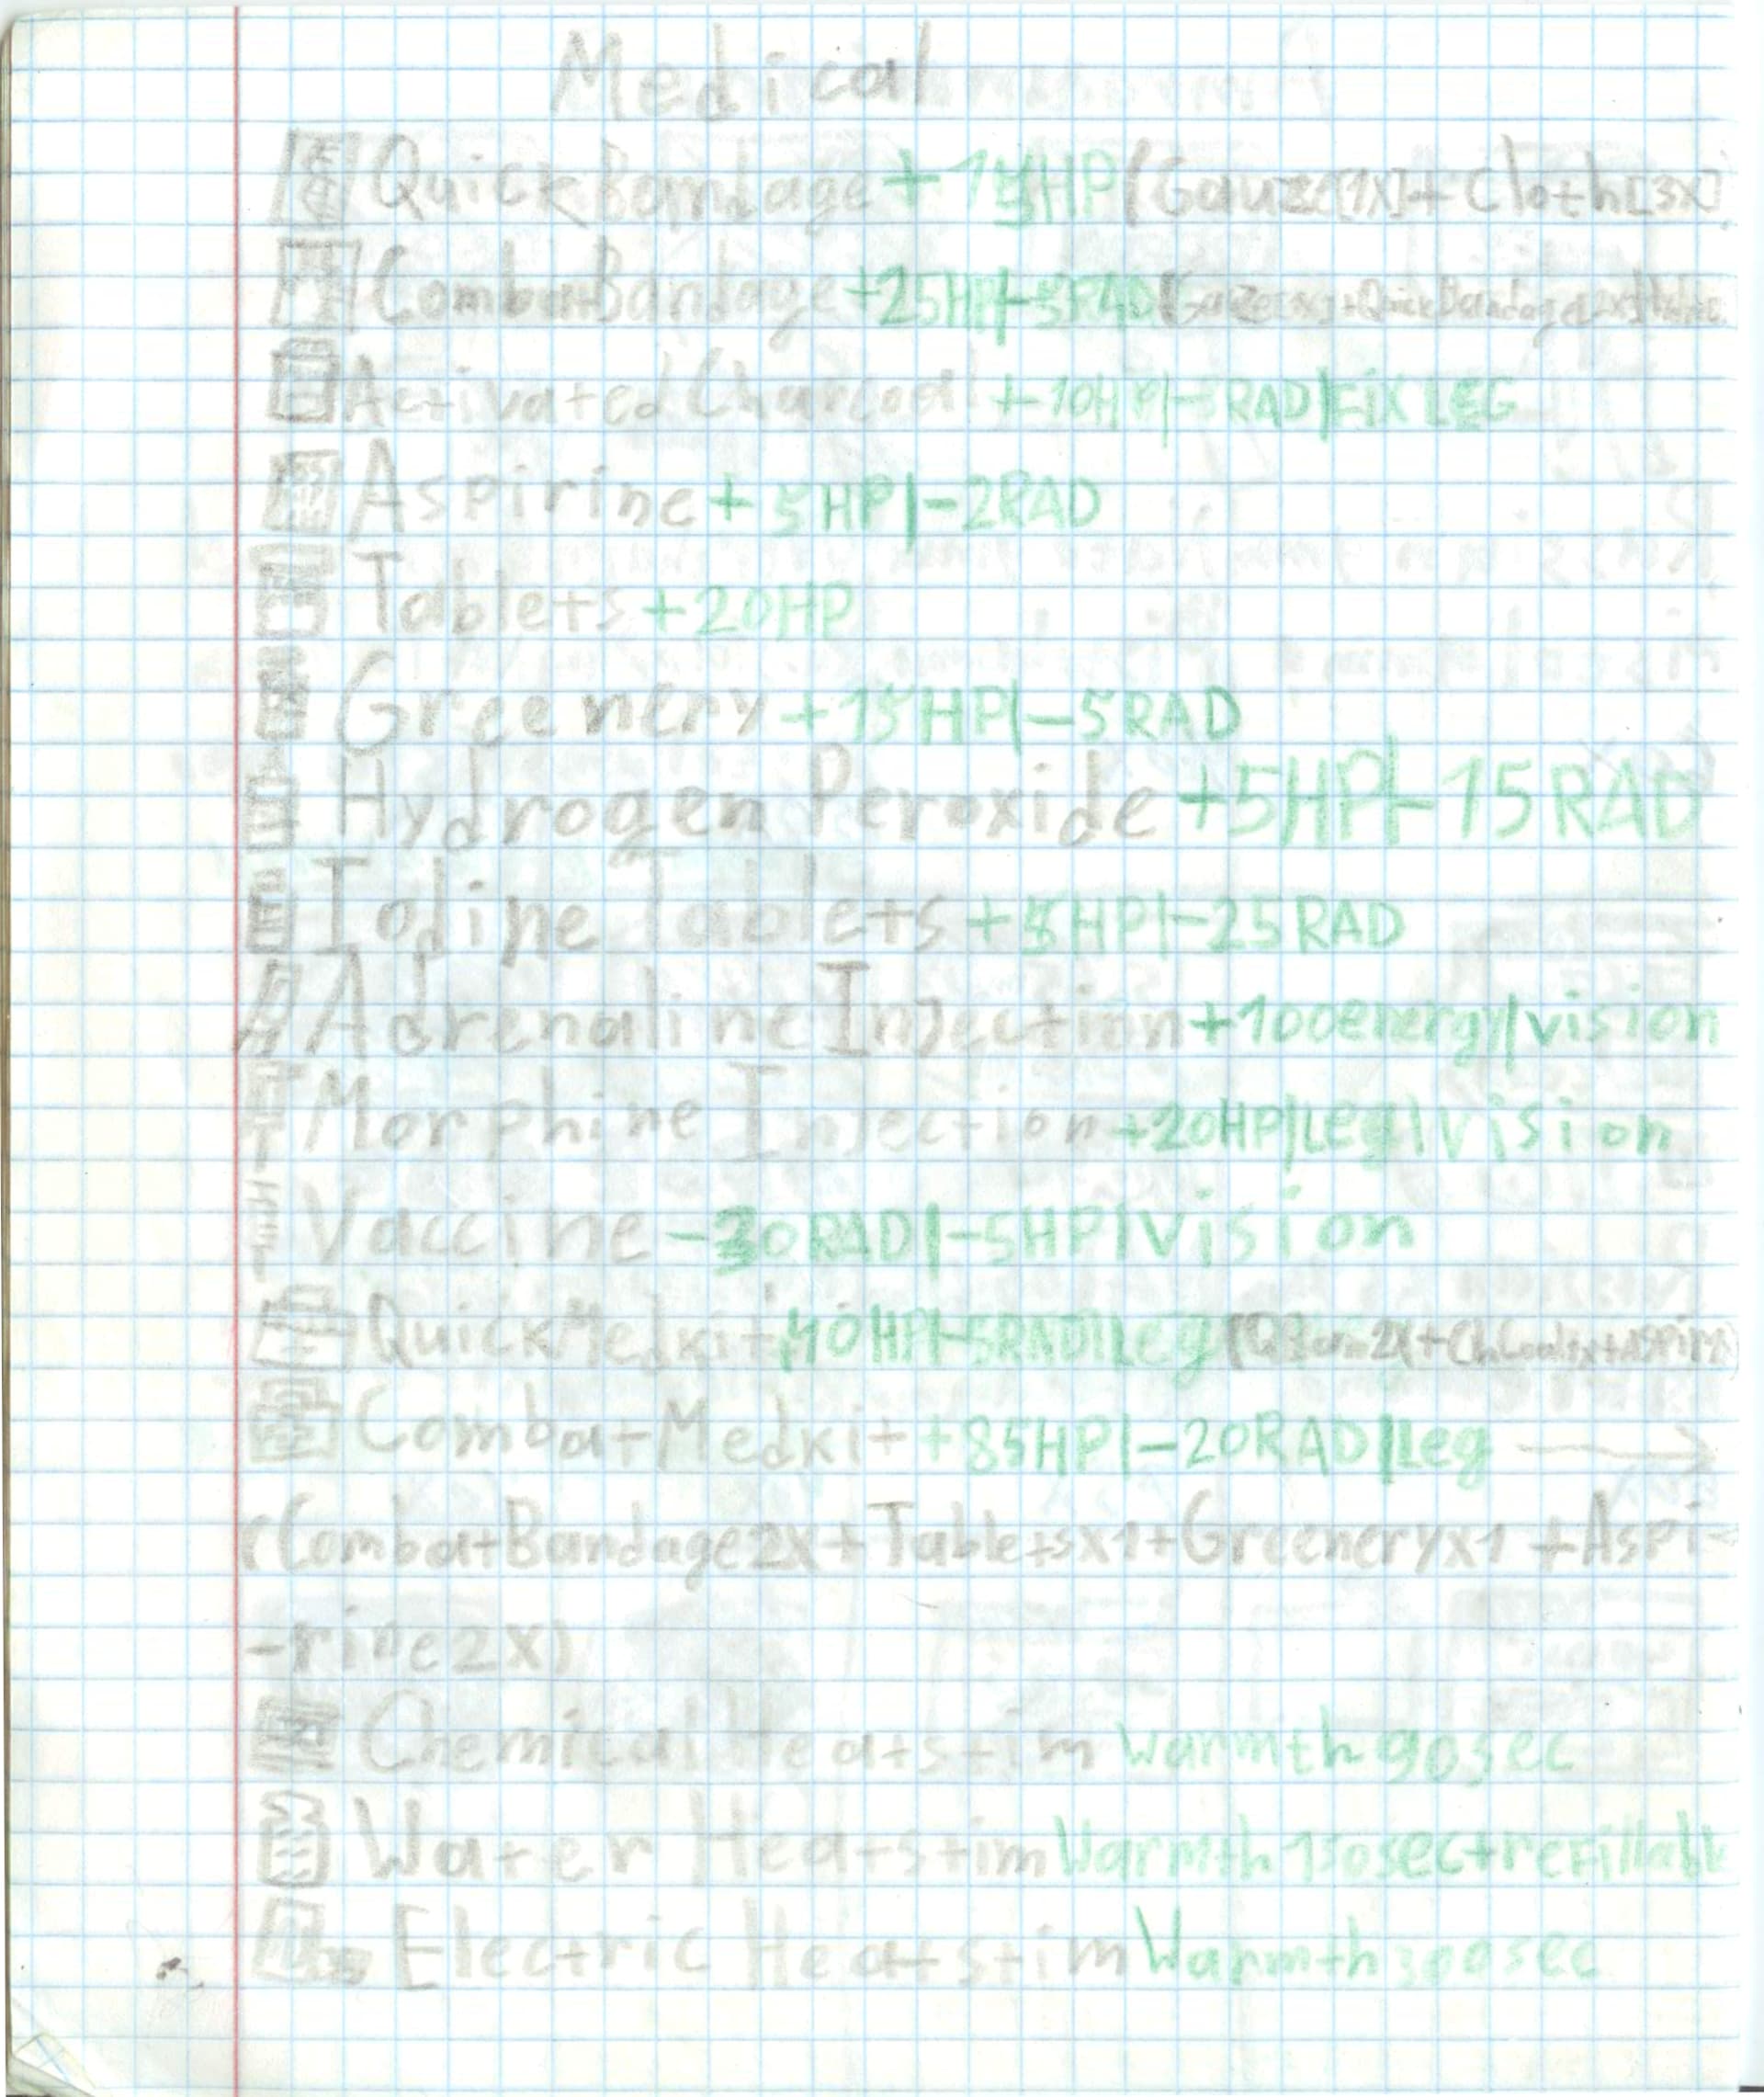 Medical
Quick Bandage +15HP (Gauze[1X]+Cloth[3X]
Combat Bandage +25HP|-5RAD(Gauze[1X]+QuickBandage[2X]
Activated Charcoal +10HP|- RAD|FiX LEG
Aspirine +5HP|-2RAD
Tablets +20HP
Greenery +15HP|-5RAD
Hydrogen Peroxide +5HP|-15RAD
Iodine Tablets +5HP|-25RAD
Adrenaline Injection +100energy|vision
Morphine Injection +20HP|Leg|vision
Vaccine -30RAD|-5HP|vision
Quick Medkit +40HP|-5RAD|Leg
Combat Medkit +85HP|-20RAD|Leg →
(Combat Bandage2X+Tabletsx1+Greeneryx1 +Aspi-
-rine2X)
Chemical Heatstim Warmth 90sec
Water Heatstim Warmth 130sec+refillable
Electric Heatstim Warmth 300sec